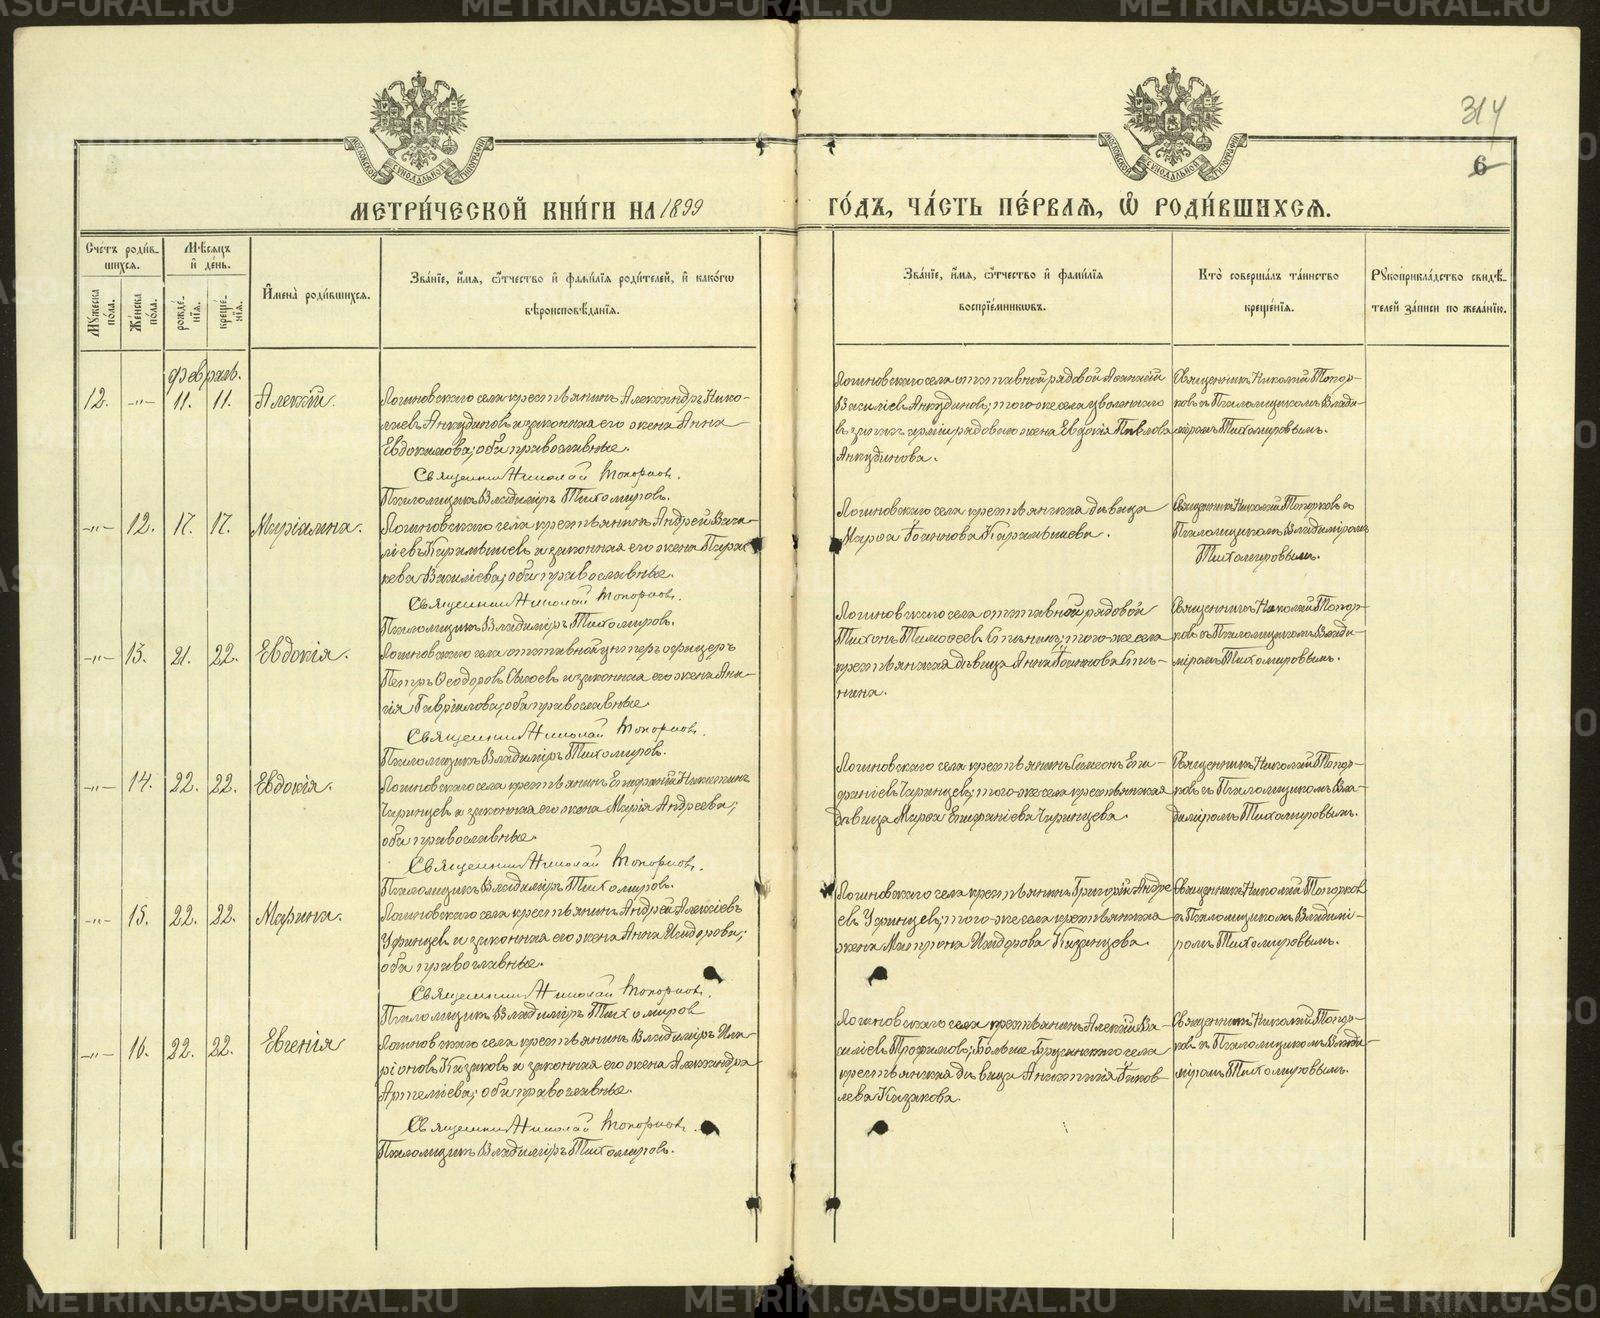 314
6
МОСКОВСКОЙ СѴНОДАЛЬНОЙ ТИПОГРАФІИ
МОСКОВСКОЙ СѴНОДАЛЬНОЙ ТИПОГРАФІИ
МЕТРИ́ЧЕСКОЙ КНИ́ГИ НА 1899
ГО́ДЪ, ЧА́СТЬ ПЕ́РВАѦ, Ѡ҆ РОДИ́ВШИХСѦ.
Сче́тъ роди́в-
шихсѧ.
Мꙋ́жеска по́ла.
Же́нска по́ла.
Мѣ́сѧцъ
и҆ де́нь.
рожде́-
нїѧ.
креще́-
нїѧ.
И҆мена̀ роди́вшихсѧ.
Зва́нїе, и҆́мѧ, ѻ҆́тчество и҆ фами́лїѧ роди́телей, и҆ како́гѡ
вѣроисповѣ́данїѧ.
Зва́нїе, и҆́мѧ, ѻ҆́тчество и҆ фами́лїѧ
воспрїе́мникѡвъ.
Кто̀ соверша́лъ та́инство
креще́нїѧ.
Рꙋкоприкла́дство свидѣ́-
телей за́писи по жела́нїю.
Февраль.
12. -"- 11. 11. Алексій.
Логиновскаго села крестьянинъ Александръ Нико-
лаевъ Анкудиновъ и законная его жена Анна
Евдокимова; оба православные.
Священникъ Николай Топорковъ.
Псаломщикъ Владиміръ Тихомировъ.
Логиновскаго села отставной рядовой Аѳанасій
Василіевъ Анкудиновъ; того-же села уволеннаго
въ запасъ арміи рядоваго жена Евдокія Павлова
Анкудинова.
Священникъ Николай Топор-
ковъ съ Псаломщикомъ Влади-
міромъ Тихомировымъ.
-"- 12. 17. 17. Маріамна.
Логиновскаго села крестьянинъ Андрей Васи-
ліевъ Карамышевъ и законная его жена Парас-
кева Василіева; оба православные.
Священникъ Николай Топорковъ.
Псаломщикъ Владиміръ Тихомировъ.
Логиновскаго села крестьянская дѣвица
Марѳа Іоаннова Карамышева.
Священникъ Николай Топорковъ съ
Псаломщикомъ Владиміромъ
Тихомировымъ.
-"- 13. 21. 22. Евдокія.
Логиновскаго села отставной унтеръ офицеръ
Петръ Ѳеодоровъ и законная его жена Ана-
гія Гавріилова; оба православные.
Священникъ Николай Топорковъ.
Псаломщикъ Владиміръ Тихомировъ.
Логиновскаго села отставной рядовой
Тихонъ Тимоѳеевъ того-же села
крестьянская дѣвица Анна Іоаннова
нина.
Священникъ Николай Топор-
ковъ съ Псаломщикомъ Влади-
міромъ Тихомировымъ.
-"- 14. 22. 22. Евдокія.
Логиновскаго села крестьянинъ Епифаній Никитинъ
Чаринцевъ и законная его жена Марія Андреева;
оба православные.
Священникъ Николай Топорковъ.
Псаломщикъ Владиміръ Тихомировъ.
Логиновскаго села крестьянинъ Симеонъ Епи-
фаніевъ Чаринцевъ; того-же села крестьянская
дѣвица Марѳа Епифаніева Чаринцева.
Священникъ Николай Топор-
ковъ съ Псаломщикомъ Вла-
диміромъ Тихомировымъ.
-"- 15. 22. 22. Марина.
Логиновскаго села крестьянинъ Андрей Алексіевъ
Уфинцевъ и законная его жена Анна Исидорова;
оба православные.
Священникъ Николай Топорковъ.
Псаломщикъ Владиміръ Тихомировъ
Логиновскаго села крестьянинъ Григорій Андре
евъ Уфинцевъ; того-же села крестьянская
жена Матрона Исидорова Казанцева.
Священникъ Николай Топорковъ
съ Псаломщикомъ Владимі-
ромъ Тихомировымъ.
-"- 16. 22. 22. Евгенія
Логиновскаго села крестьянинъ Владиміръ Ила-
ріоновъ Казаковъ и законная его жена Александра
Артеміева; оба православные.
Священникъ Николай Топорковъ.
Псаломщикъ Владиміръ Тихомировъ.
Логиновскаго села крестьянинъ Алексій Ва-
силіевъ Трофимовъ; Больше Брусянскаго села
крестьянская дѣвица Анастасія Іаков-
лева Казакова.
Священникъ Николай Топор-
ковъ съ Псаломщикомъ Влади-
міромъ Тихомировымъ.
METRIKI.GASO-URAL.RU